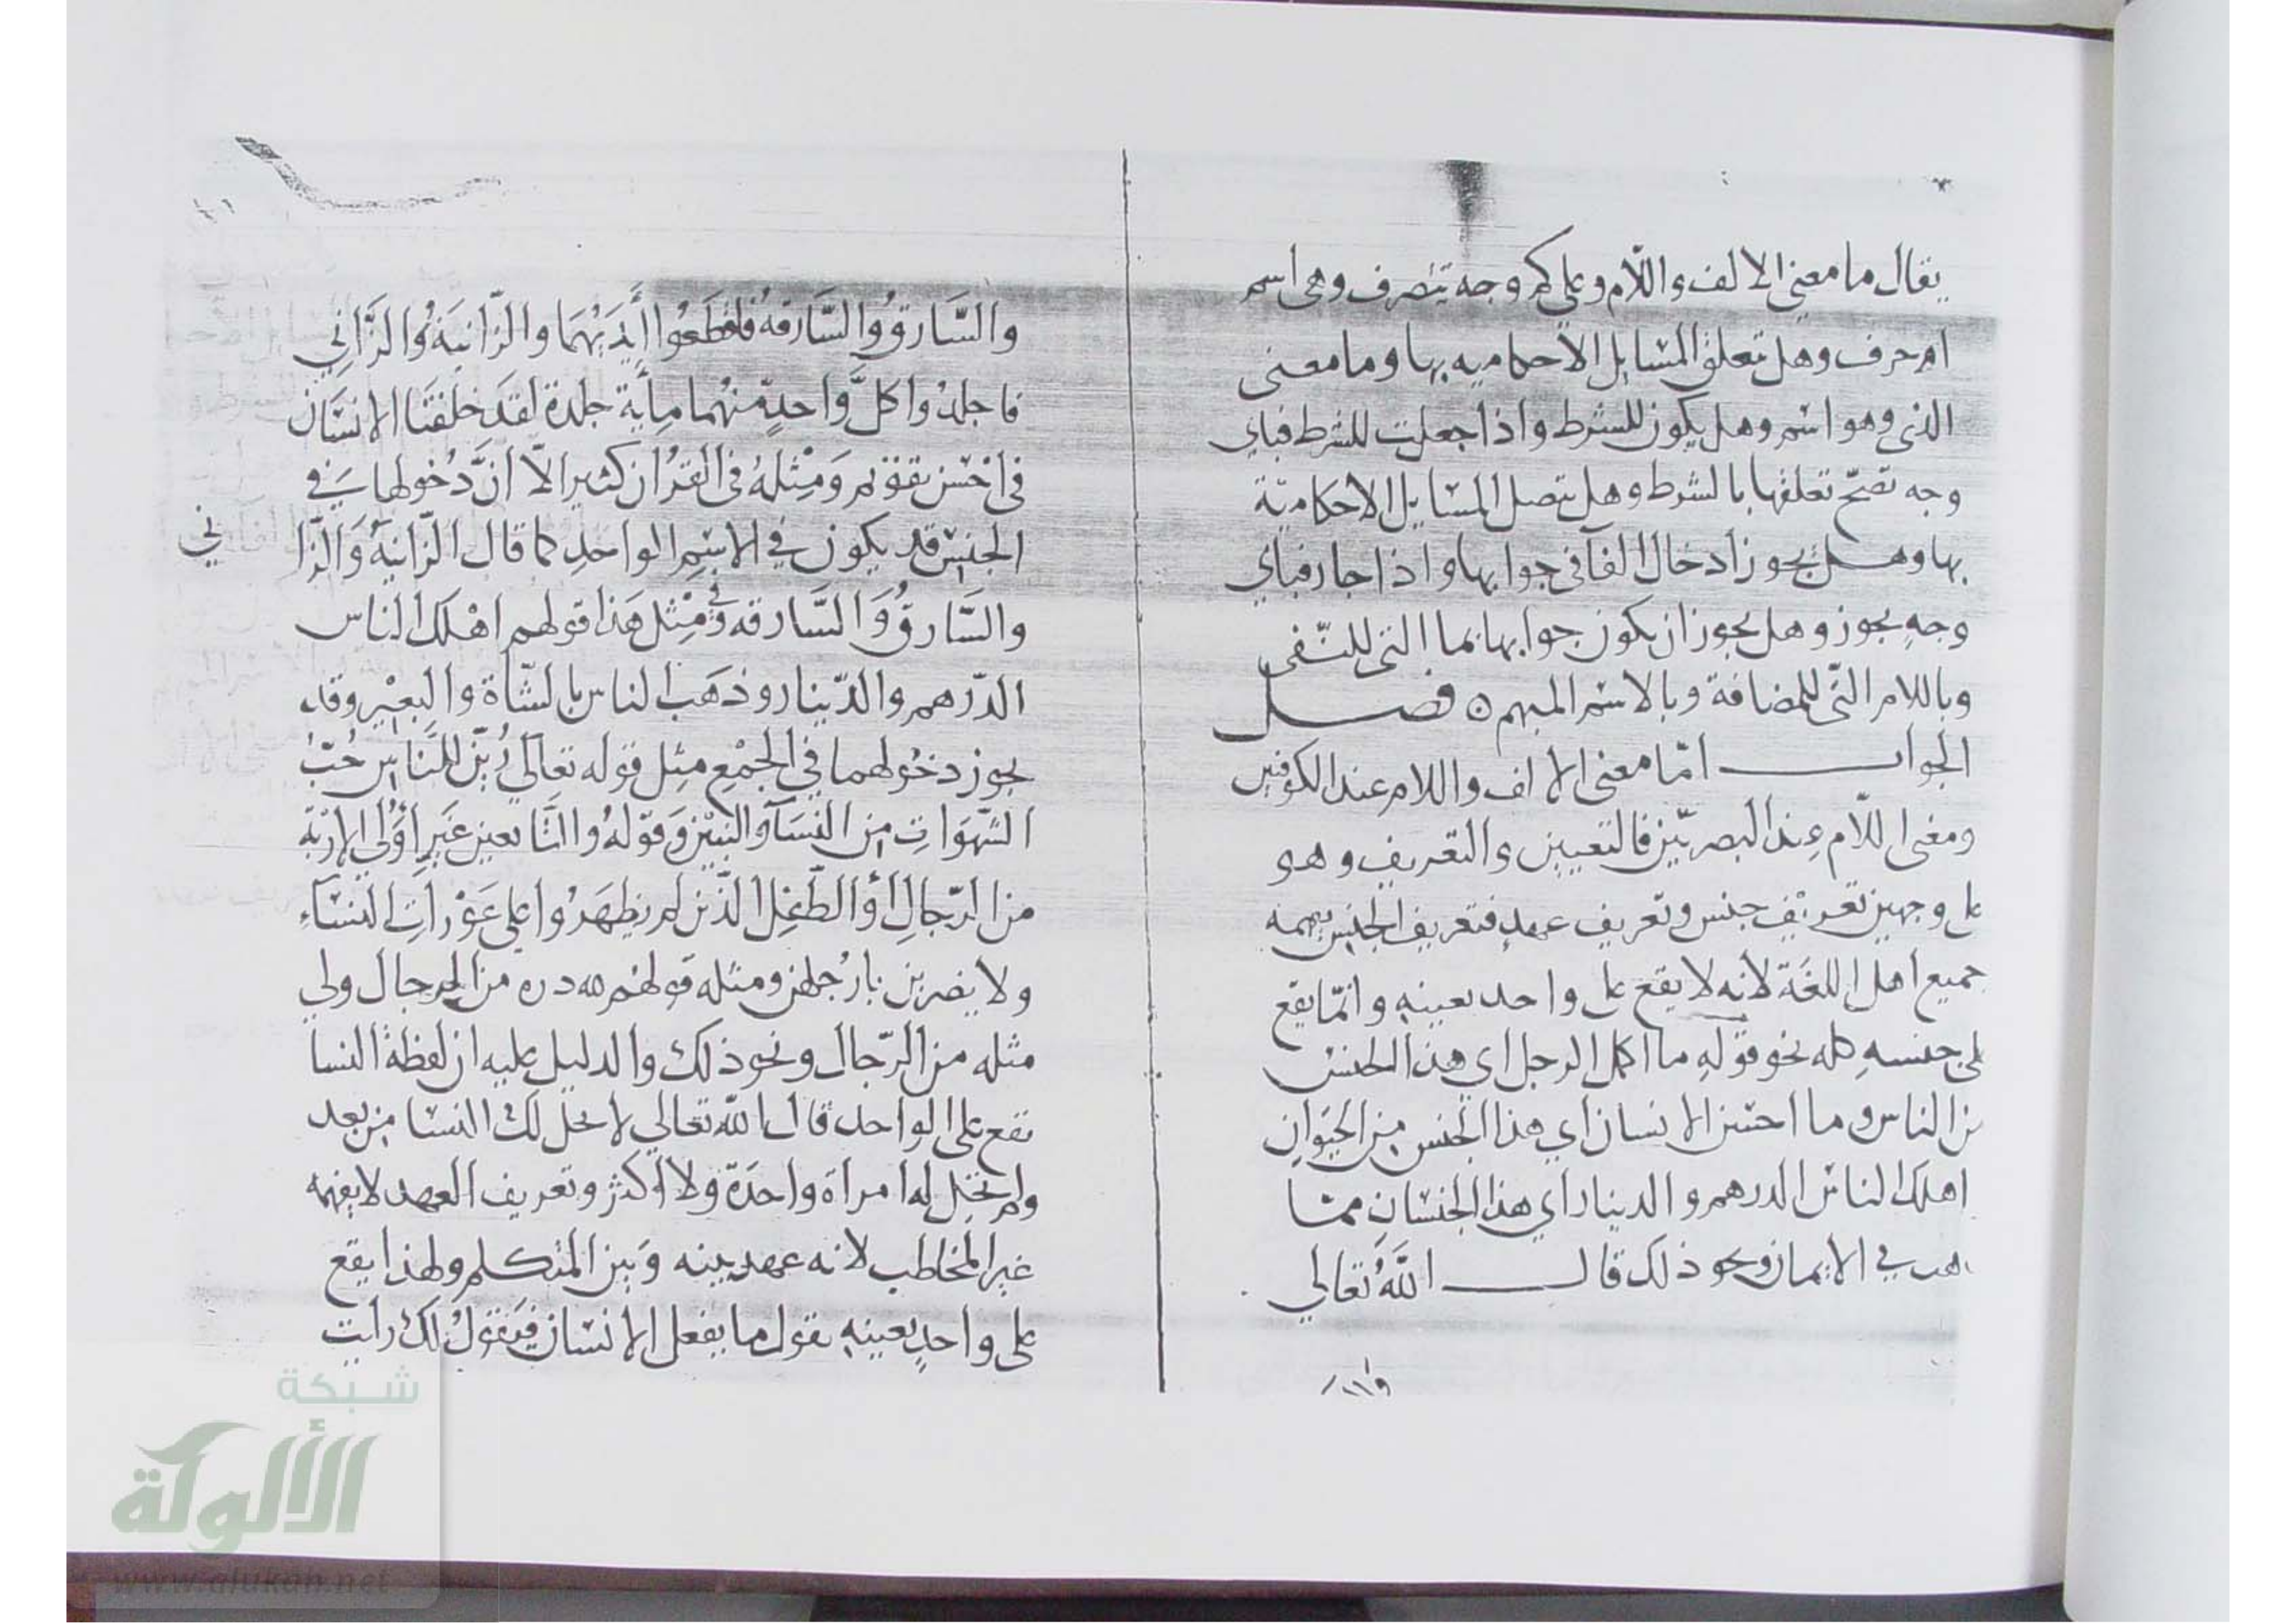 يقال ما معنى الالف واللّام وعلى كم وجه تتصرف وهى اسم
ام حرف وهل تعلق المسايل الاحكاميه بها وما معنى
الذى وهو اسم وهل يكون للشرط واذا جعلت للشرط فباي
وجه تصحّ تعلقها بالشرط وهل تتصل المسايل الاحكاميّة
بها وهل يجوز ادخال الفآ في جوابها واذا جاز فباي
وجهٍ يجوز وهل يجوز ان يكون جوابها بما التى للنّفى
وباللام التّى للمضافة وبالاسم المبهم ٥ فصل
الجواب امّا معنى الالف واللام عند الكوفيين
ومعنى اللّام عِند البصريّين فالتعيين والتعريف وهو
على وجهين تعريْف جنس وتعريف عهدٍ فتعريف الجنس يفهمه
جميع اهل اللغَة لأنه لا يقع على واحد بعينهِ وانّما يقع
على جنسهِ كله نحو قولهِ ما اكمل الرجل اي هذا الجنسُ
من الناس وما احسن الانسان اي هذا الجنس مِن الحيَوانِ
اهلك الناسَ الدرهم والدينار اي هذا الجنسَانِ ممّا
في الايمان ونحو ذلك قال اللَّهُ تعالى
والسَّارقُ والسَّارقةُ فاقطَعُوا أَيدَيَهُمَا والزّانيَةُ والزَّانِي
فاجلدُوا كلَّ وَاحدٍ مّنهُما مِايَة جلدة لَقَد خلقنَا الانسَانَ
في احْسَن تقوَيم وَمِثلهُ في القرُان كثير الّا انَّ دُخولها في
الجنس قد يكون في الاسْمِ الواحدِ كما قال الزّانيةُ وَالزّا
ني
والسَّارقُ وَالسَّارقه وفي مِثل هَذا قولهم اهْلك الناس
الدّرهم والدّينار وذهَب الناس بالشّاة والبعِيْر وقد
يجوز دخولهما في الجمْعِ مثِل قوله تعالى زُيّن للنّاسِ حُبّ
الشّهوَاتِ مِن النسَآ والبنيْن وَقولهُ والتّابعين غيَرِ أُوْلي الإرْبَة
من الرّجالِ أوْ الطّفِل الّذين لم يظهَرُوا على عَوْراتِ النسَآءِ
ولا يضربن بارُجلهن ومثله قولهُم لله دره من الرجال ولي
مثله من الرّجال ونحو ذلك والدليل عليه ان لفظة النسا
تقع على الواحد قال الله تعالى لا تحل لك النسا مِن بعد
ولم تحِل له امرأة واحدَة وَلا اكثر وتعريف العهد لا يفهمه
غير المخاطب لانه عهد بينه وَبين المتكلم ولهذا يقع
على واحدٍ بعينهِ تقول ما يفعل الانسان فيَقولُ لك رايت
شبكة
الألوكة
www.alukah.net